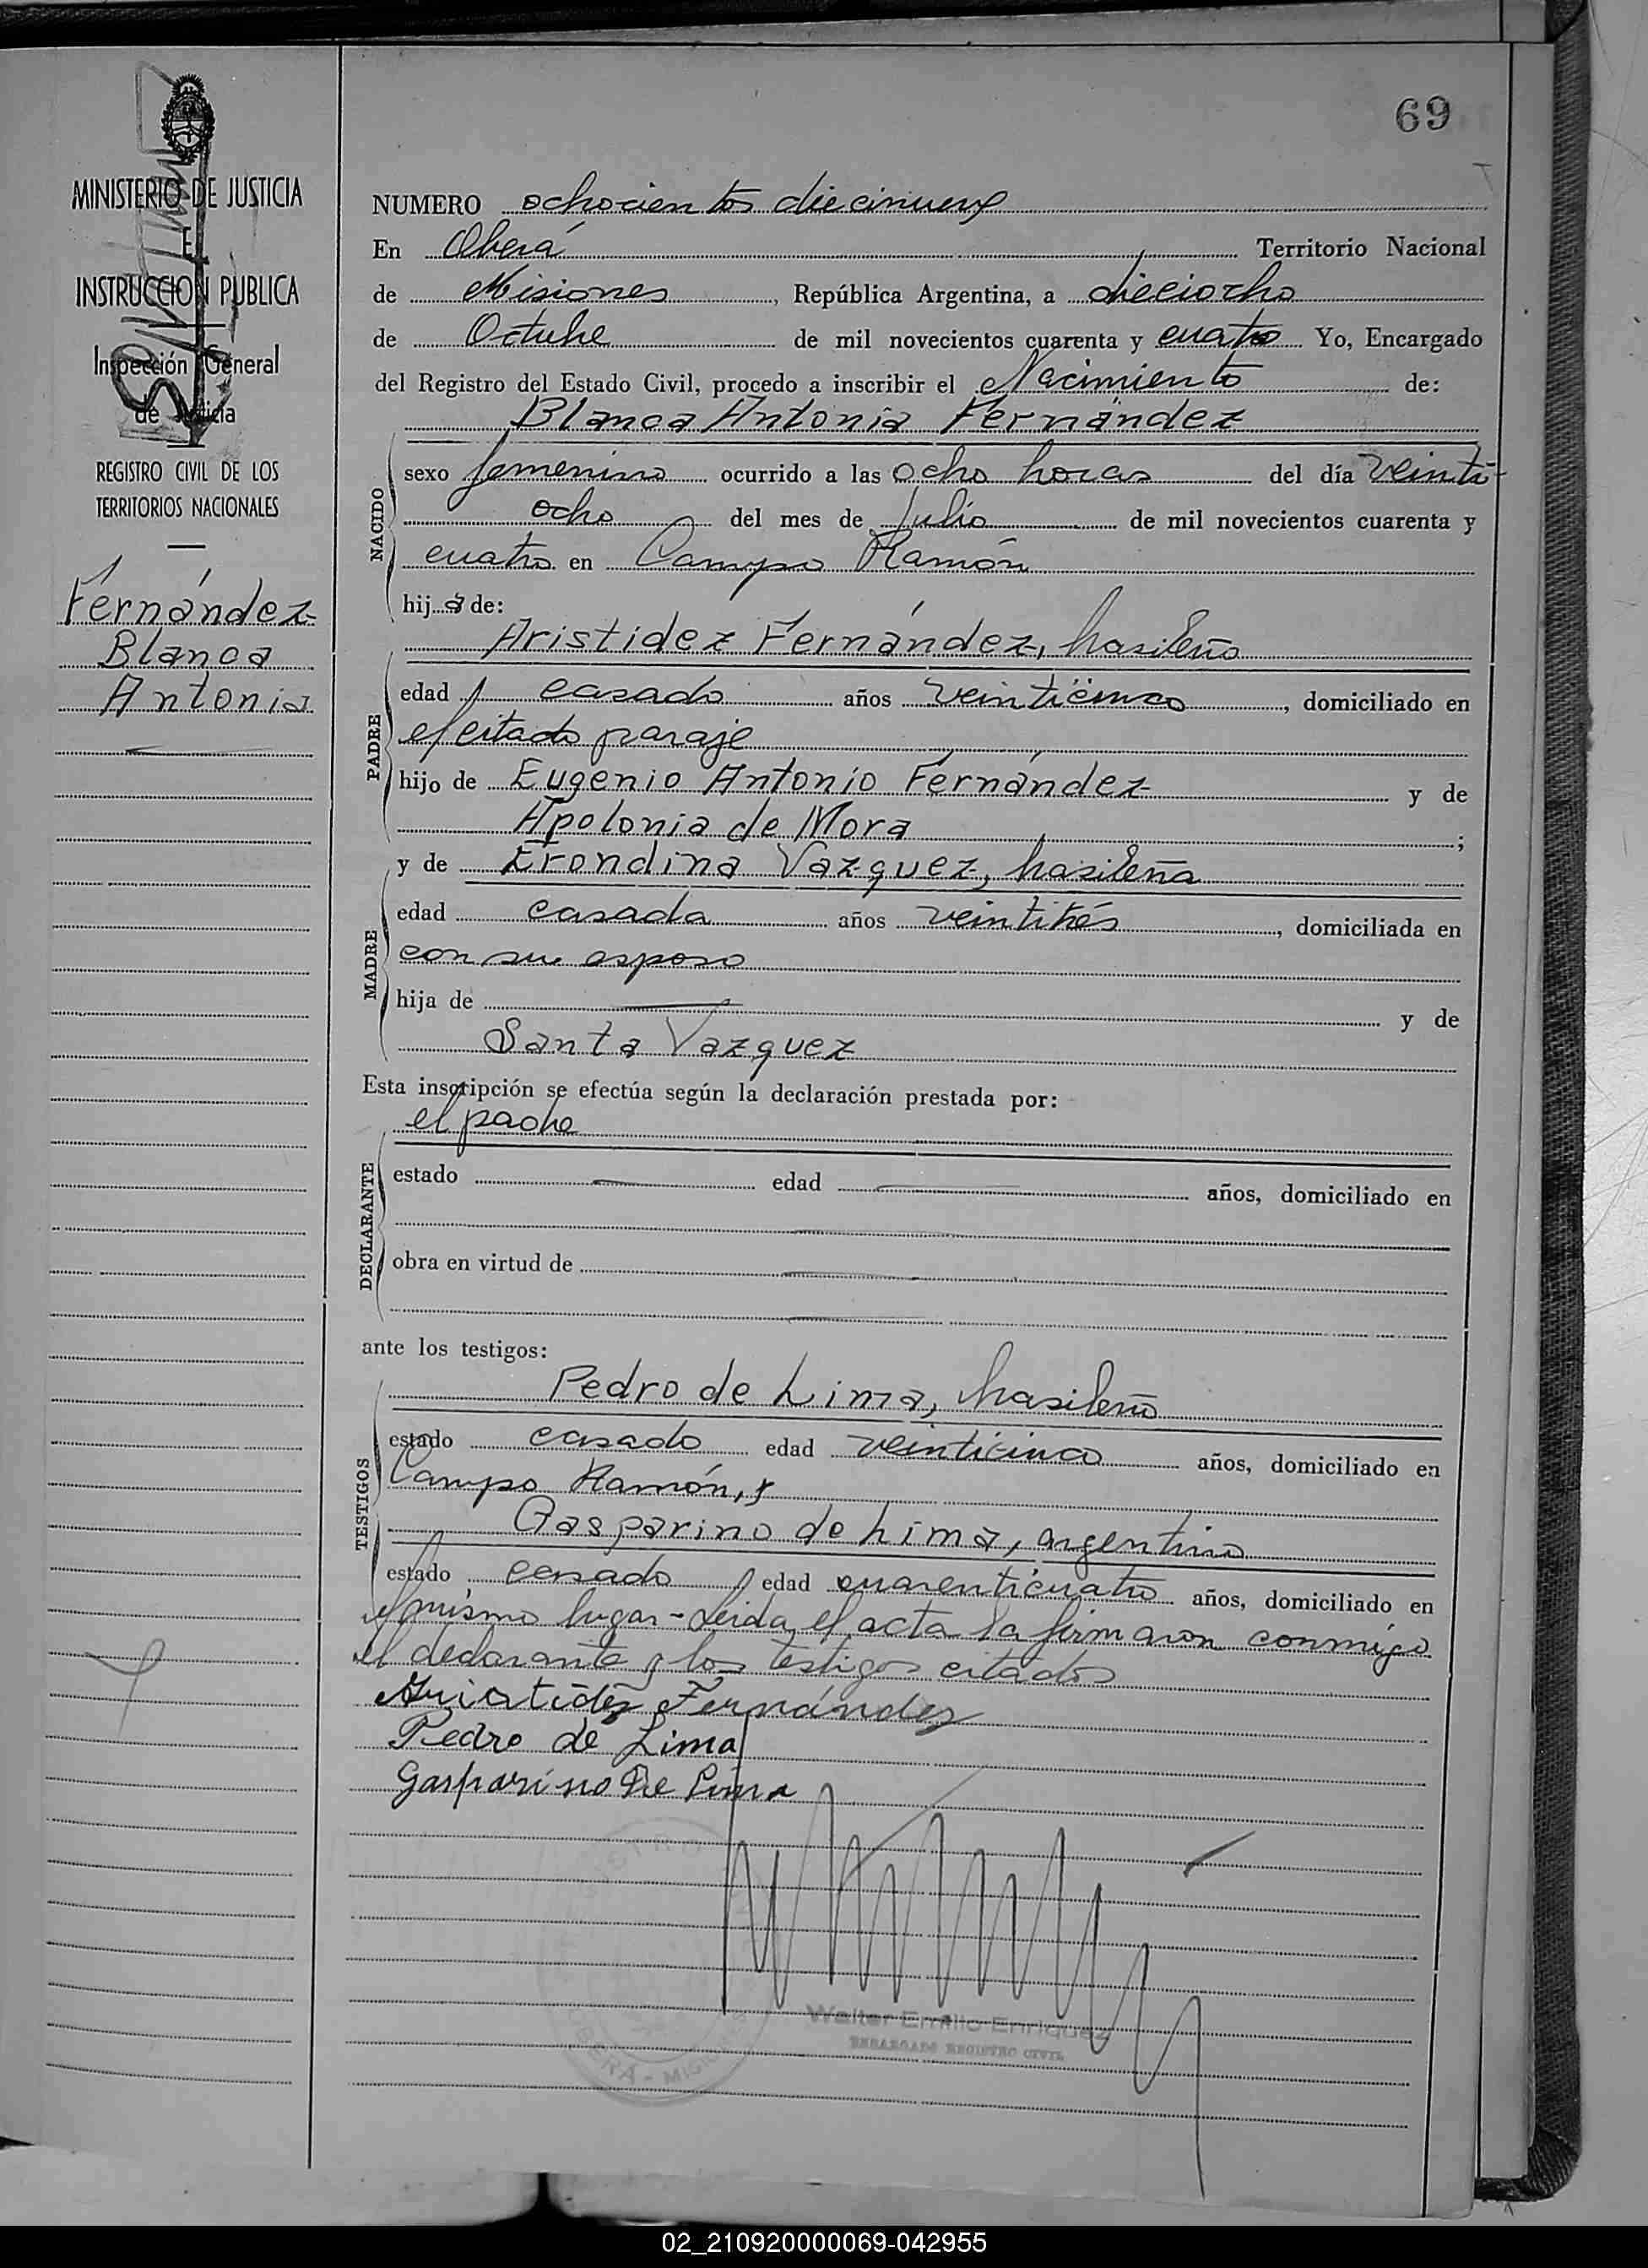 69
MINISTERIO DE JUSTICIA
E
INSTRUCCION PUBLICA
Inspección General
de Justicia
REGISTRO CIVIL DE LOS
TERRITORIOS NACIONALES
Fernández
Blanca
Antonia
NUMERO ochocientos diecinueve
En Oberá Territorio Nacional
de Misiones, República Argentina, a dieciocho
de Octubre de mil novecientos cuarenta y cuatro Yo, Encargado
del Registro del Estado Civil, procedo a inscribir el Nacimiento de:
Blanca Antonia Fernández
NACIDO
sexo femenino ocurrido a las ocho horas del día veinti-
ocho del mes de Julio de mil novecientos cuarenta y
cuatro en Campo Ramón
hija de:
Aristidez Fernández, brasileño
PADRE
edad casado años veinticinco, domiciliado en
el citado paraje
hijo de Eugenio Antonio Fernández y de
Apolonia de Mora;
y de Erondina Vazquez, brasileña
MADRE
edad casada años veintitrés, domiciliada en
con su esposo
hija de y de
Santa Vazquez
Esta inscripción se efectúa según la declaración prestada por:
el padre
DECLARANTE
estado edad años, domiciliado en
obra en virtud de
ante los testigos:
Pedro de Lima, brasileño
TESTIGOS
estado casado edad veinticinco años, domiciliado en
Campo Ramón, y
Gasparino de Lima, argentino
estado casado edad cuarenticuatro años, domiciliado en
el mismo lugar - Leida el acta la firmaron conmigo
el declarante y los testigos citados
Aristidez Fernández
Pedro de Lima
Gasparino De Lima
Walter Emilio Enriquez
ENCARGADO REGISTRO CIVIL
OBERÁ - MISIONES
02_210920000069-042955